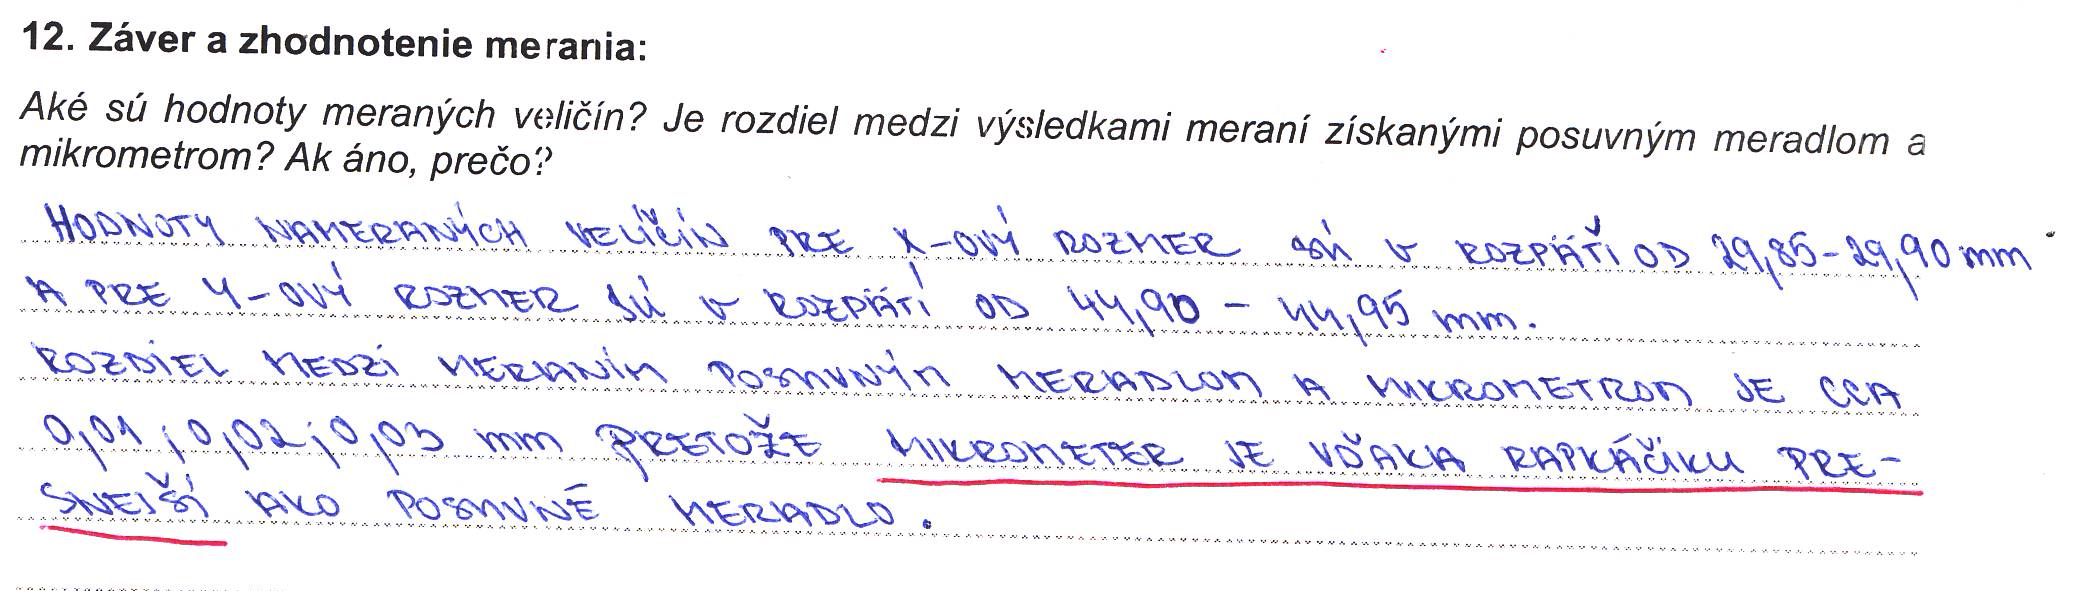 12. Záver a zhodnotenie merania:
Aké sú hodnoty meraných veličín? Je rozdiel medzi výsledkami meraní získanými posuvným meradlom a
mikrometrom? Ak áno, prečo?
HODNOTY NAMERANÝCH VELIČÍN PRE X-OVÝ ROZMER SÚ V ROZPÄTÍ OD 29,85-29,90 mm
A PRE Y-OVÝ ROZMER SÚ V ROZPÄTÍ OD 44,90 - 44,95 mm.
ROZDIEL MEDZI MERANÍM POSUVNÝM MERADLOM A MIKROMETROM JE CCA
0,01 ; 0,02 ; 0,03 mm PRETOŽE MIKROMETER JE VĎAKA RAPKÁČIKU PRE-
SNEJŠÍ AKO POSUVNÉ MERADLO.